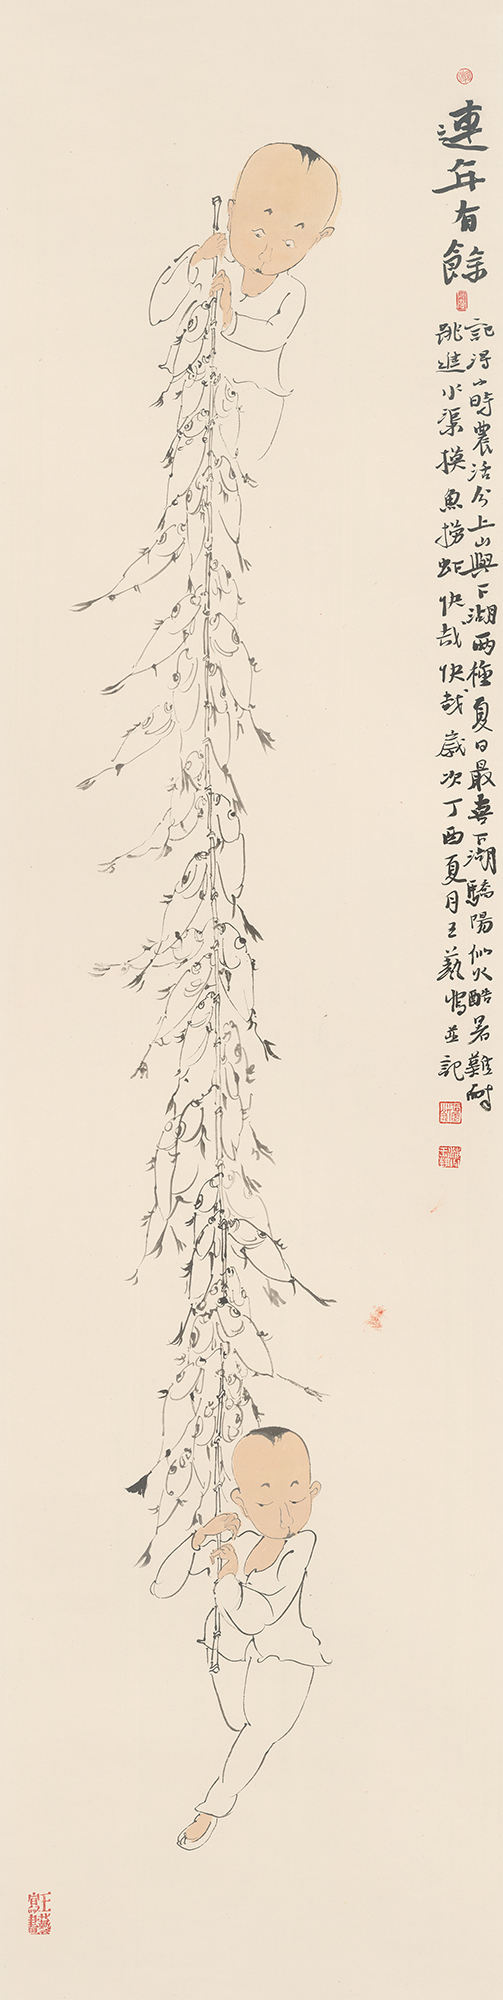 連年有餘
記得小時農活分上山與下湖兩種夏日最喜下湖驕陽似火酷暑難耐
跳進水渠摸魚撈蝦快哉快哉歲次丁酉夏月王藝 並記